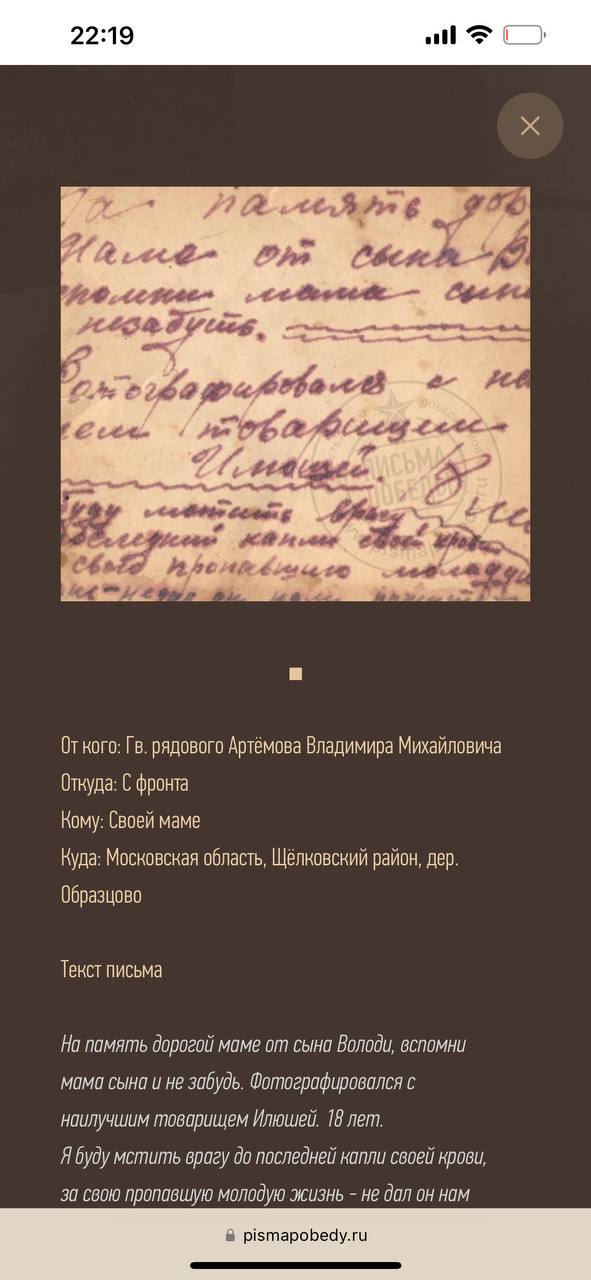 22:19
На память дор
Маме от сына В
спомни мама сына
незабудь.
Фотографировался с на
шем товарищем
Илюшей.
Буду мстить врагу
последний капли своей крови
свою пропавшую молодую
ПИСЬМА
ПОБЕДЫ
От кого: Гв. рядового Артёмова Владимира Михайловича
Откуда: С фронта
Кому: Своей маме
Куда: Московская область, Щёлковский район, дер.
Образцово
Текст письма
На память дорогой маме от сына Володи, вспомни
мама сына и не забудь. Фотографировался с
наилучшим товарищем Илюшей. 18 лет.
Я буду мстить врагу до последней капли своей крови,
за свою пропавшую молодую жизнь - не дал он нам
pismapobedy.ru